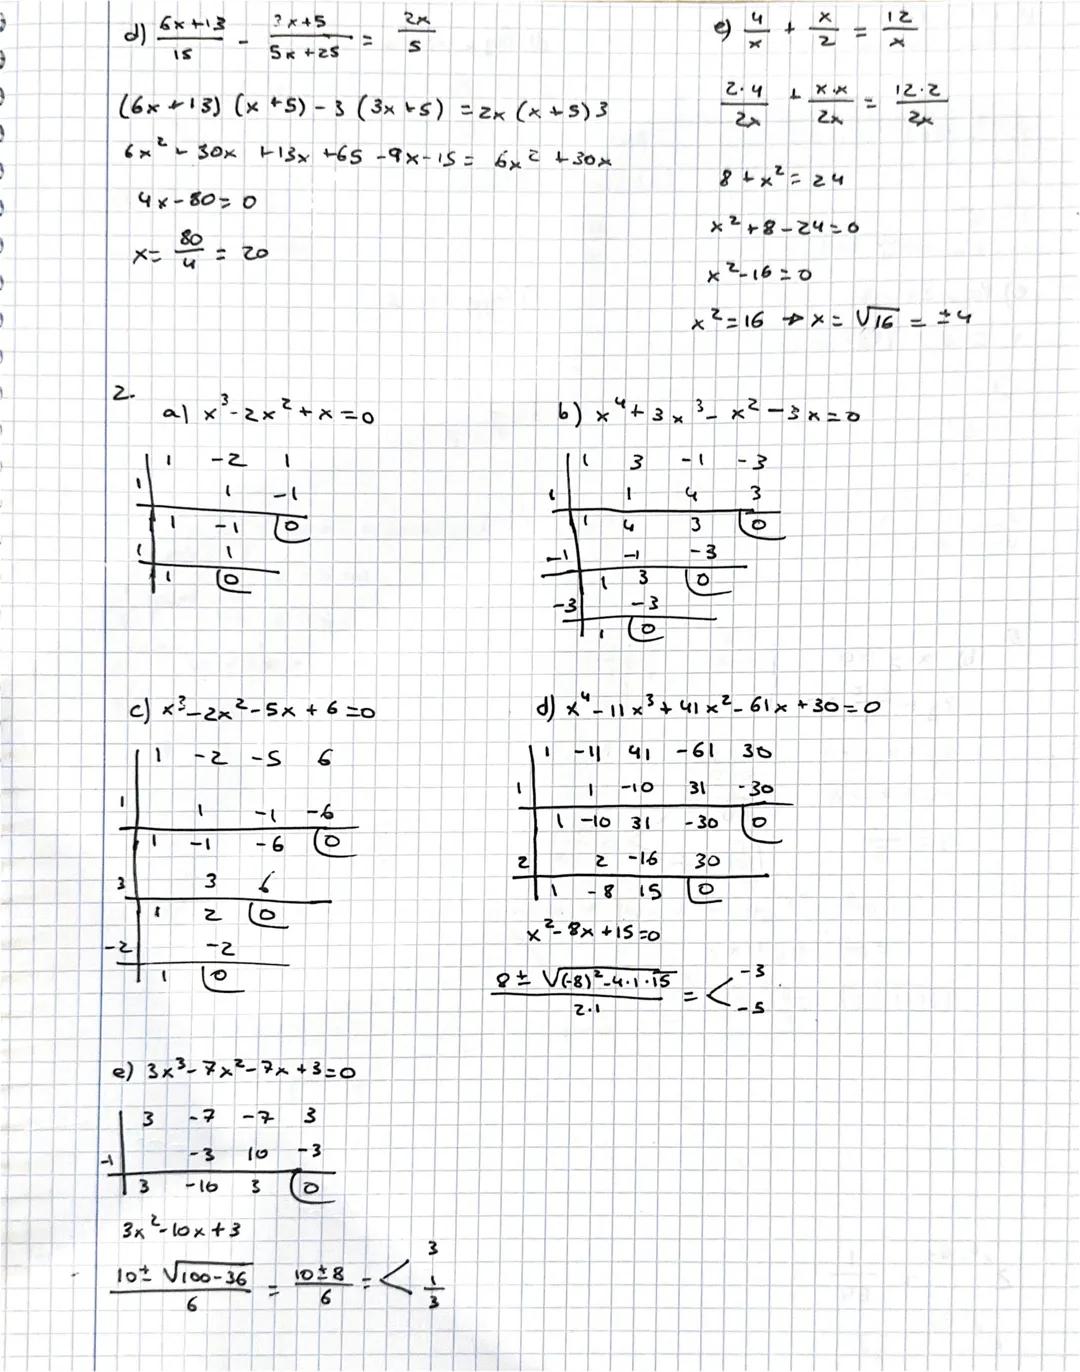 d) (6x+13)/15 - (3x+5)/(5x+25) = 2x/5
(6x+13)(x+5) - 3(3x+5) = 2x(x+5)3
6x² + 30x + 13x + 65 - 9x - 15 = 6x² + 30x
4x - 80 = 0
x = 80/4 = 20
e) 4/x + x/2 = 12/x
2·4/2x + x·x/2x = 12·2/2x
8 + x² = 24
x² + 8 - 24 = 0
x² - 16 = 0
x² = 16 → x = √16 = ±4
2.
a) x³ - 2x² + x = 0
1 -2 1
1 1 -1
1 -1 0
1 1
1 0
b) x⁴ + 3x³ - x² - 3x = 0
1 3 -1 -3
1 1 4 3
1 4 3 0
-1 -1 -3
1 3 0
-3 -3
1 0
c) x³ - 2x² - 5x + 6 = 0
1 -2 -5 6
1 1 -1 -6
1 -1 -6 0
3 3 6
1 2 0
-2 -2
1 0
d) x⁴ - 11x³ + 41x² - 61x + 30 = 0
1 -11 41 -61 30
1 1 -10 31 -30
1 -10 31 -30 0
2 2 -16 30
1 -8 15 0
x² - 8x + 15 = 0
(8 ± √((-8)² - 4·1·15))/(2·1) = < -3
-5
e) 3x³ - 7x² - 7x + 3 = 0
3 -7 -7 3
-1 -3 10 -3
3 -10 3 0
3x² - 10x + 3
(10 ± √(100-36))/6 = (10±8)/6 = < 3
1/3